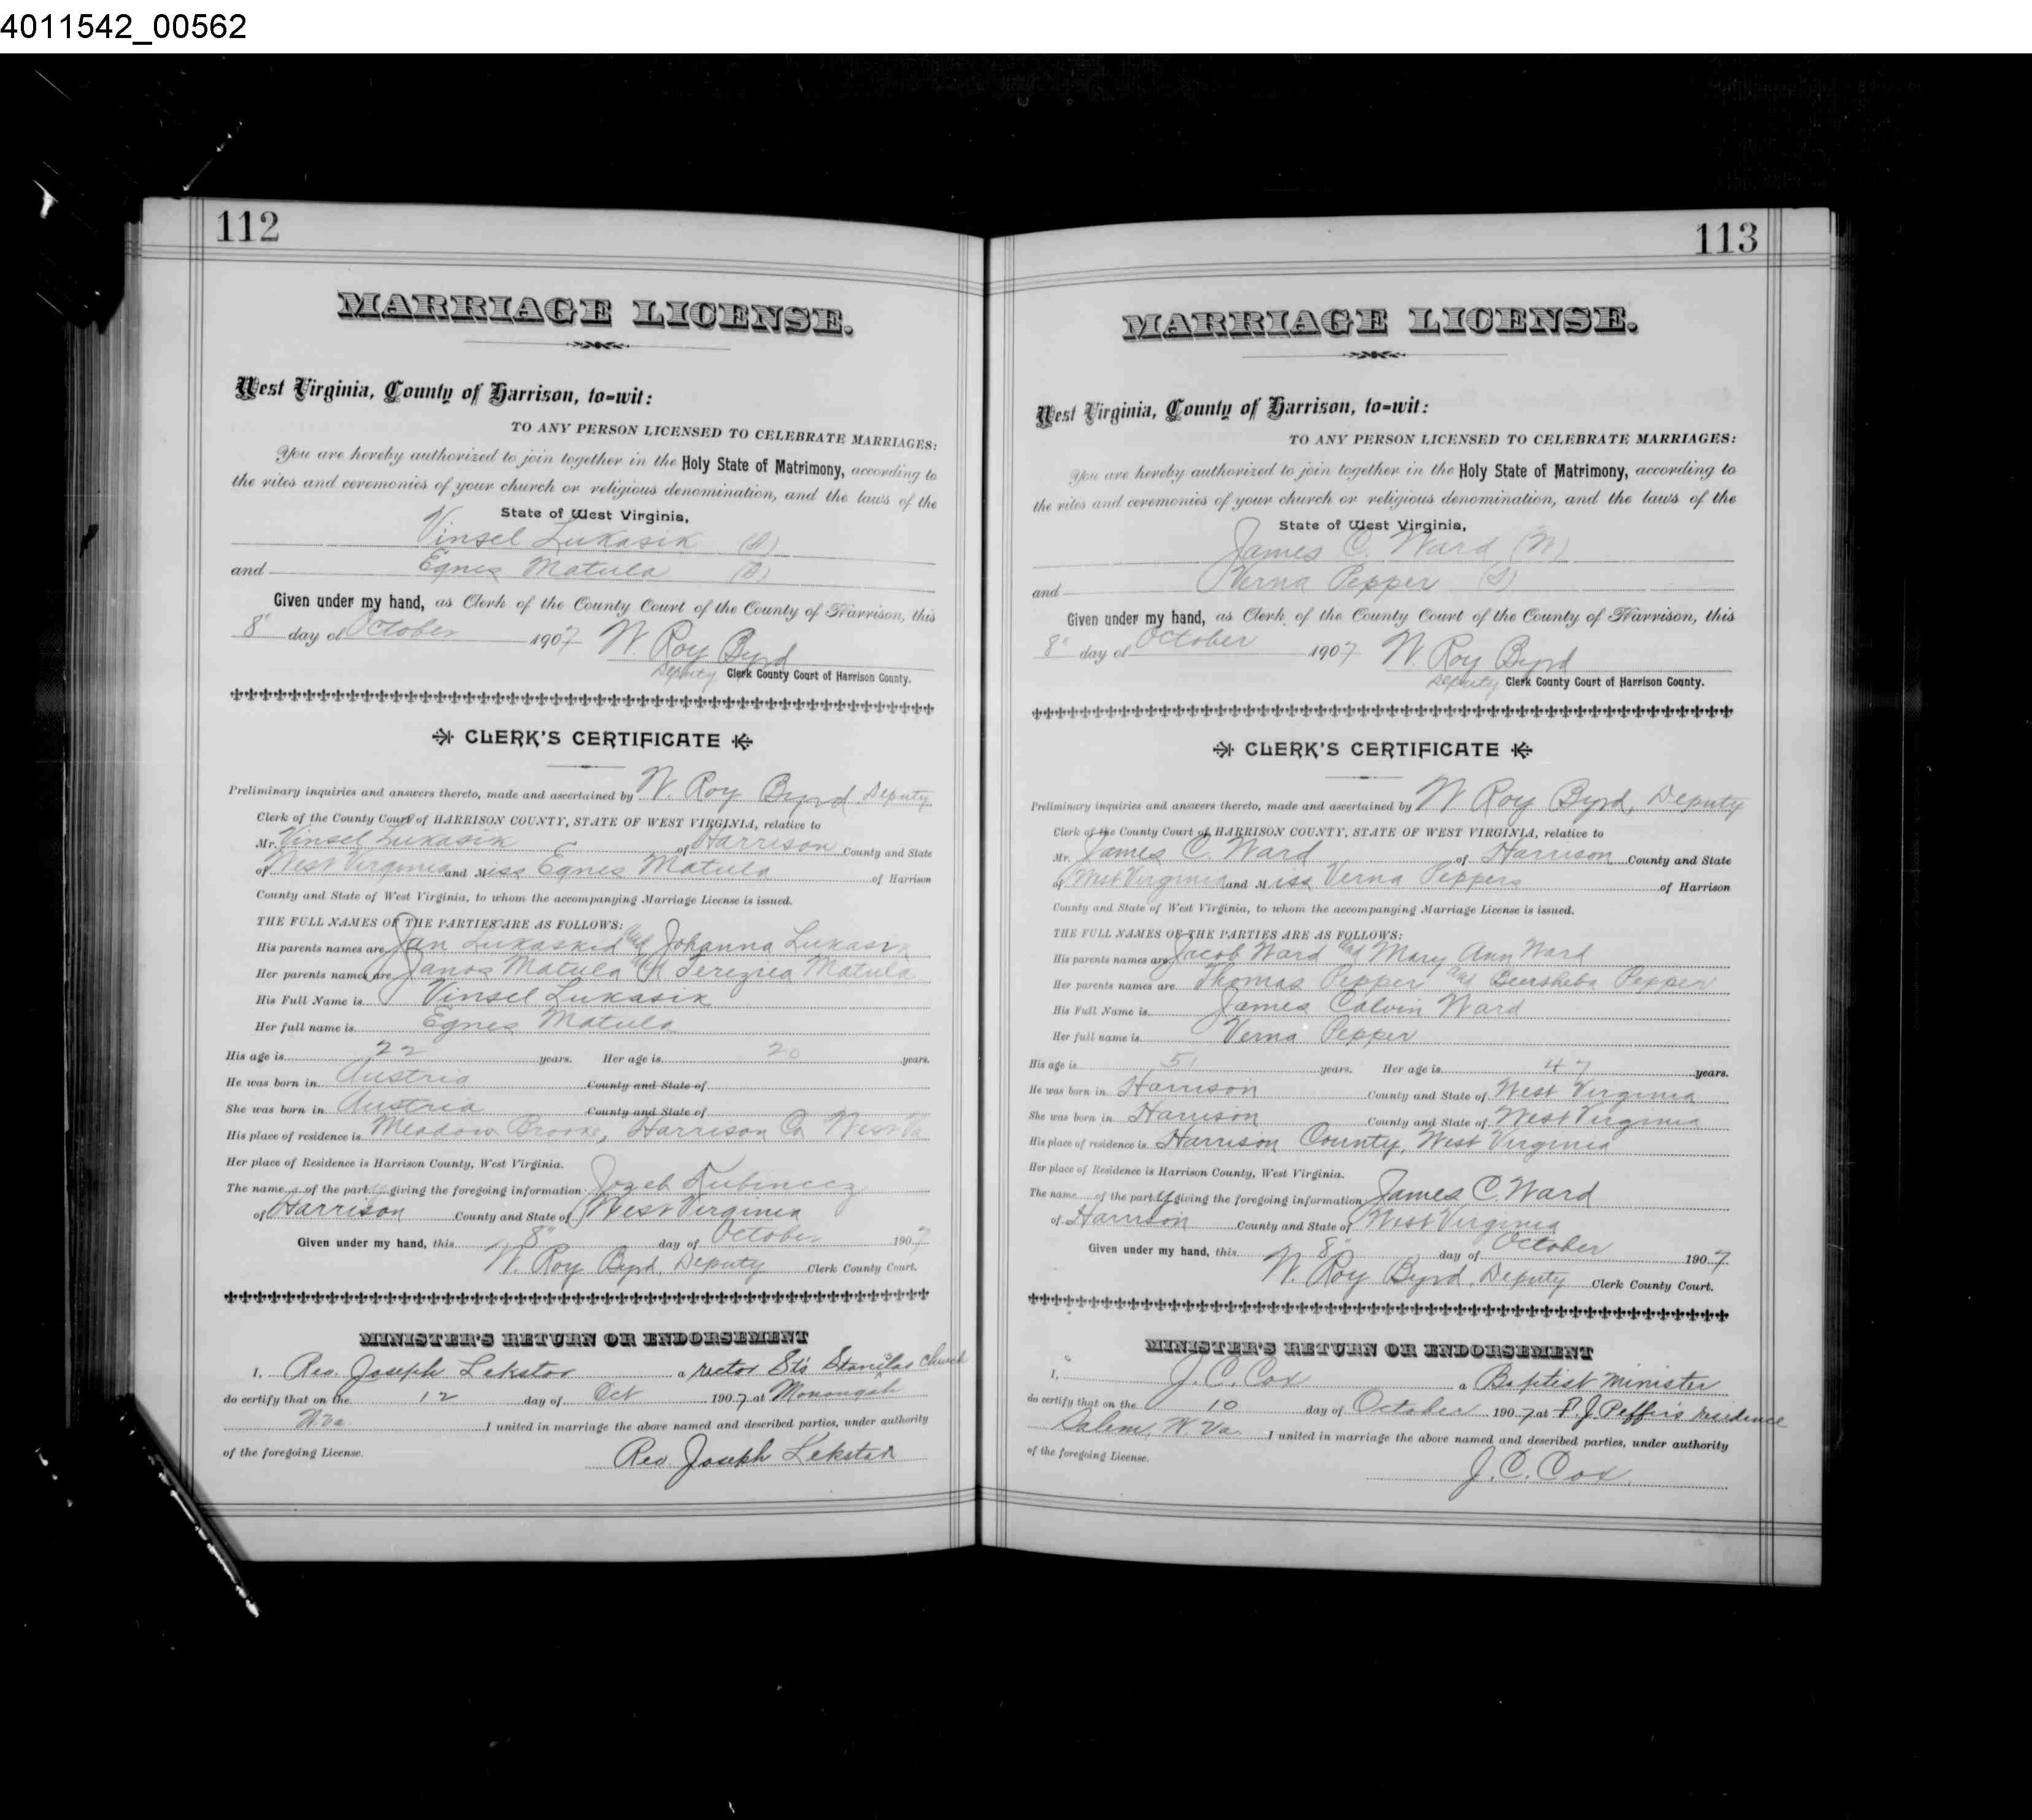 4011542_00562
112
MARRIAGE LICENSE.
West Virginia, County of Harrison, to=wit:
TO ANY PERSON LICENSED TO CELEBRATE MARRIAGES:
You are hereby authorized to join together in the Holy State of Matrimony, according to
the rites and ceremonies of your church or religious denomination, and the laws of the
State of West Virginia,
Vinsel Lukasik (S)
and Egnes Matula (S)
Given under my hand, as Clerk of the County Court of the County of Harrison, this
8" day of October 1907 W. Roy Byrd
Deputy Clerk County Court of Harrison County.
CLERK'S CERTIFICATE
Preliminary inquiries and answers thereto, made and ascertained by W. Roy Byrd Deputy
Clerk of the County Court of HARRISON COUNTY, STATE OF WEST VIRGINIA, relative to
Mr. Vinsel Lukasik of Harrison County and State
of West Virginia and Miss Egnes Matula of Harrison
County and State of West Virginia, to whom the accompanying Marriage License is issued.
THE FULL NAMES OF THE PARTIES ARE AS FOLLOWS:
His parents names are Jan and Johanna
Her parents names are Janos Matula Matula
His Full Name is Vinsel Lukasik
Her full name is Egnes Matula
His age is 22 years. Her age is 20 years.
He was born in Austria County and State of
She was born in Austria County and State of
His place of residence is Meadow Brooke, Harrison Co West Va
Her place of Residence is Harrison County, West Virginia.
The name of the part giving the foregoing information
of Harrison County and State of West Virginia
Given under my hand, this 8" day of October 1907
W. Roy Byrd, Deputy Clerk County Court.
MINISTER'S RETURN OR ENDORSEMENT
I, Rev. Joseph Lekston a rector St's Stanilas church
do certify that on the 12 day of Oct 1907 at Monongah
W.Va. I united in marriage the above named and described parties, under authority
of the foregoing License.
Rev Joseph Lekston
113
MARRIAGE LICENSE.
West Virginia, County of Harrison, to=wit:
TO ANY PERSON LICENSED TO CELEBRATE MARRIAGES:
You are hereby authorized to join together in the Holy State of Matrimony, according to
the rites and ceremonies of your church or religious denomination, and the laws of the
State of West Virginia,
James C. Ward (W)
and Verna Pepper (S)
Given under my hand, as Clerk of the County Court of the County of Harrison, this
8" day of October 1907 W. Roy Byrd
Deputy Clerk County Court of Harrison County.
CLERK'S CERTIFICATE
Preliminary inquiries and answers thereto, made and ascertained by W Roy Byrd, Deputy
Clerk of the County Court of HARRISON COUNTY, STATE OF WEST VIRGINIA, relative to
Mr. James C. Ward of Harrison County and State
of West Virginia and Miss Verna Peppers of Harrison
County and State of West Virginia, to whom the accompanying Marriage License is issued.
THE FULL NAMES OF THE PARTIES ARE AS FOLLOWS:
His parents names are Jacob Ward and Mary Ann Ward
Her parents names are Thomas Pepper and Beersheba Pepper
His Full Name is James Calvin Ward
Her full name is Verna Pepper
His age is 51 years. Her age is 47 years.
He was born in Harrison County and State of West Virginia
She was born in Harrison County and State of West Virginia
His place of residence is Harrison County, West Virginia
Her place of Residence is Harrison County, West Virginia.
The name of the party giving the foregoing information James C. Ward
of Harrison County and State of West Virginia
Given under my hand, this 8" day of October 1907
W. Roy Byrd, Deputy Clerk County Court.
MINISTER'S RETURN OR ENDORSEMENT
I, J. C. Cox a Baptist Minister
do certify that on the 10 day of October 1907 at P. J. Peffer's residence
Salem, W. Va. I united in marriage the above named and described parties, under authority
of the foregoing License.
J. C. Cox.